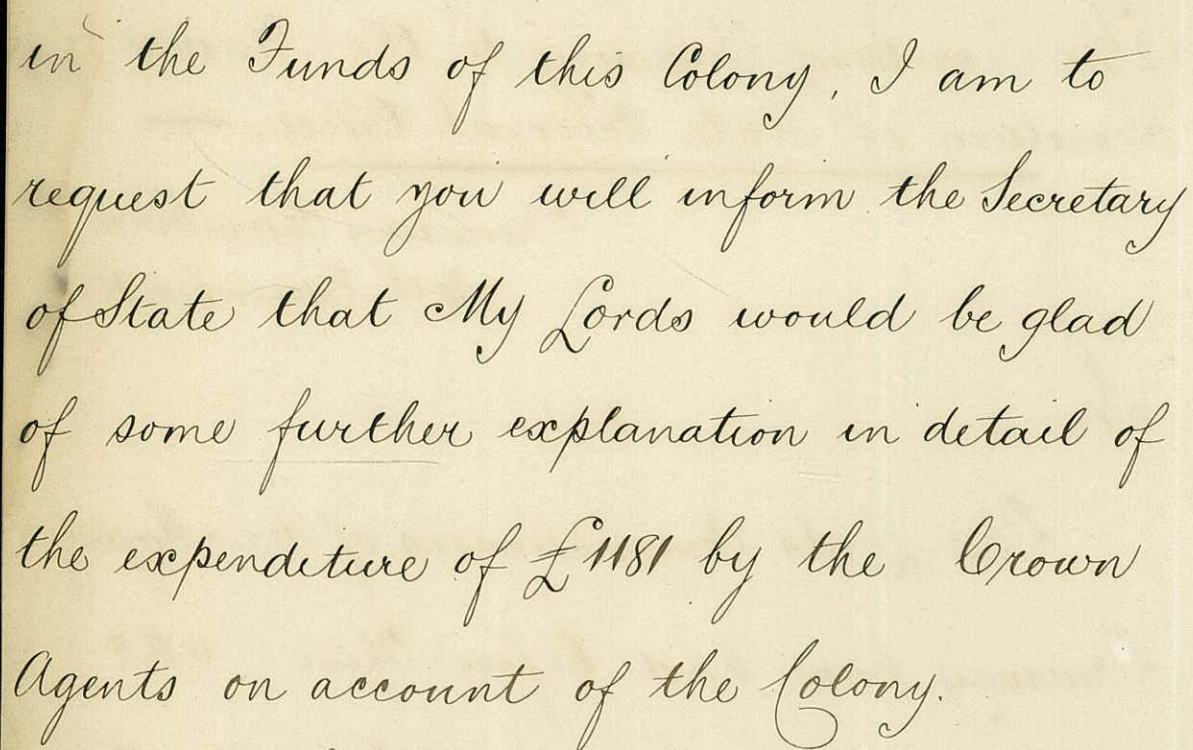 in the Funds of this Colony, I am to
request that you will inform the Secretary
of State that My Lords would be glad
of some further explanation in detail of
the expenditure of £1181 by the Crown
Agents on account of the Colony.